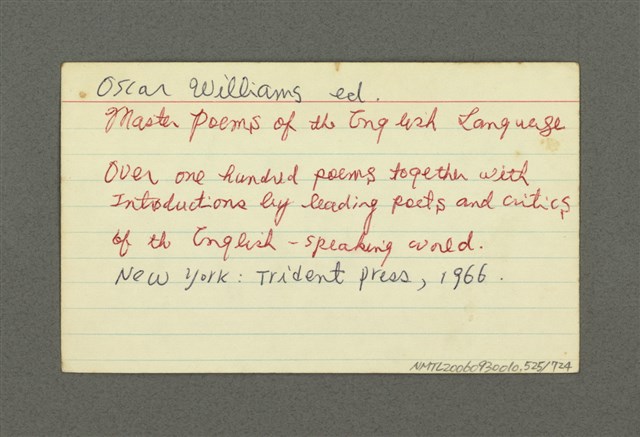 Oscar Williams ed.
Master Poems of the English Language
Over one hundred poems together with
Introductions by leading poets and critics
of th English-speaking world.
New York: Trident Press, 1966.
NMTL20060930010.525/724